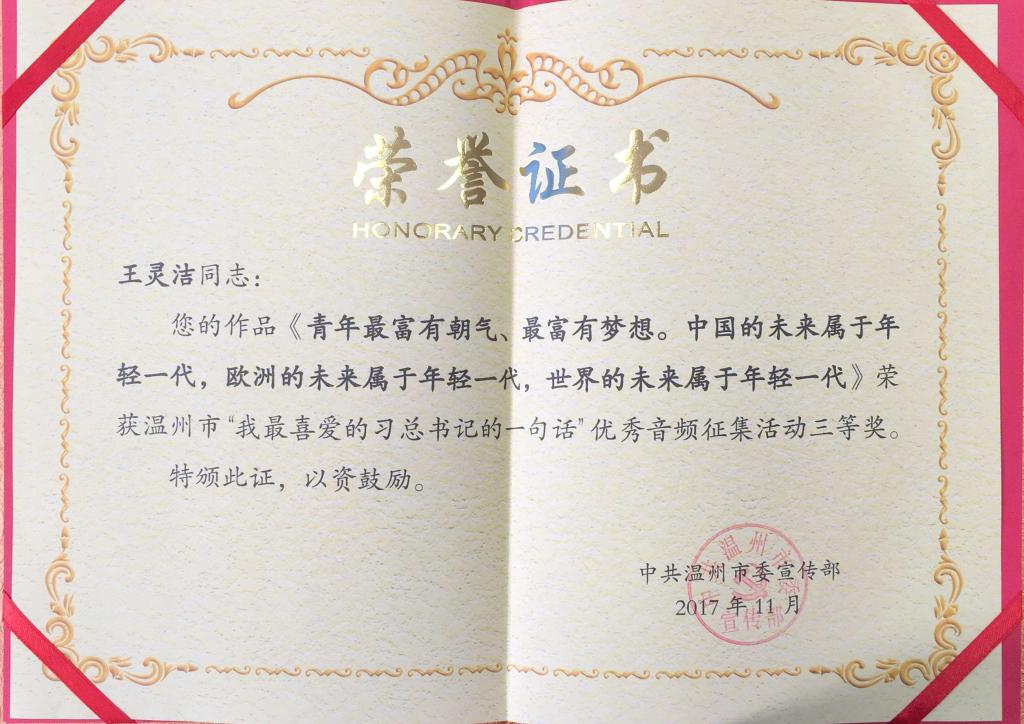 荣誉证书
HONORARY CREDENTIAL
王灵洁同志：
您的作品《青年最富有朝气、最富有梦想。中国的未来属于年
轻一代，欧洲的未来属于年轻一代，世界的未来属于年轻一代》荣
获温州市“我最喜爱的习总书记的一句话”优秀音频征集活动三等奖。
特颁此证，以资鼓励。
中共温州市委宣传部
2017 年 11 月
中共温州市委
宣传部